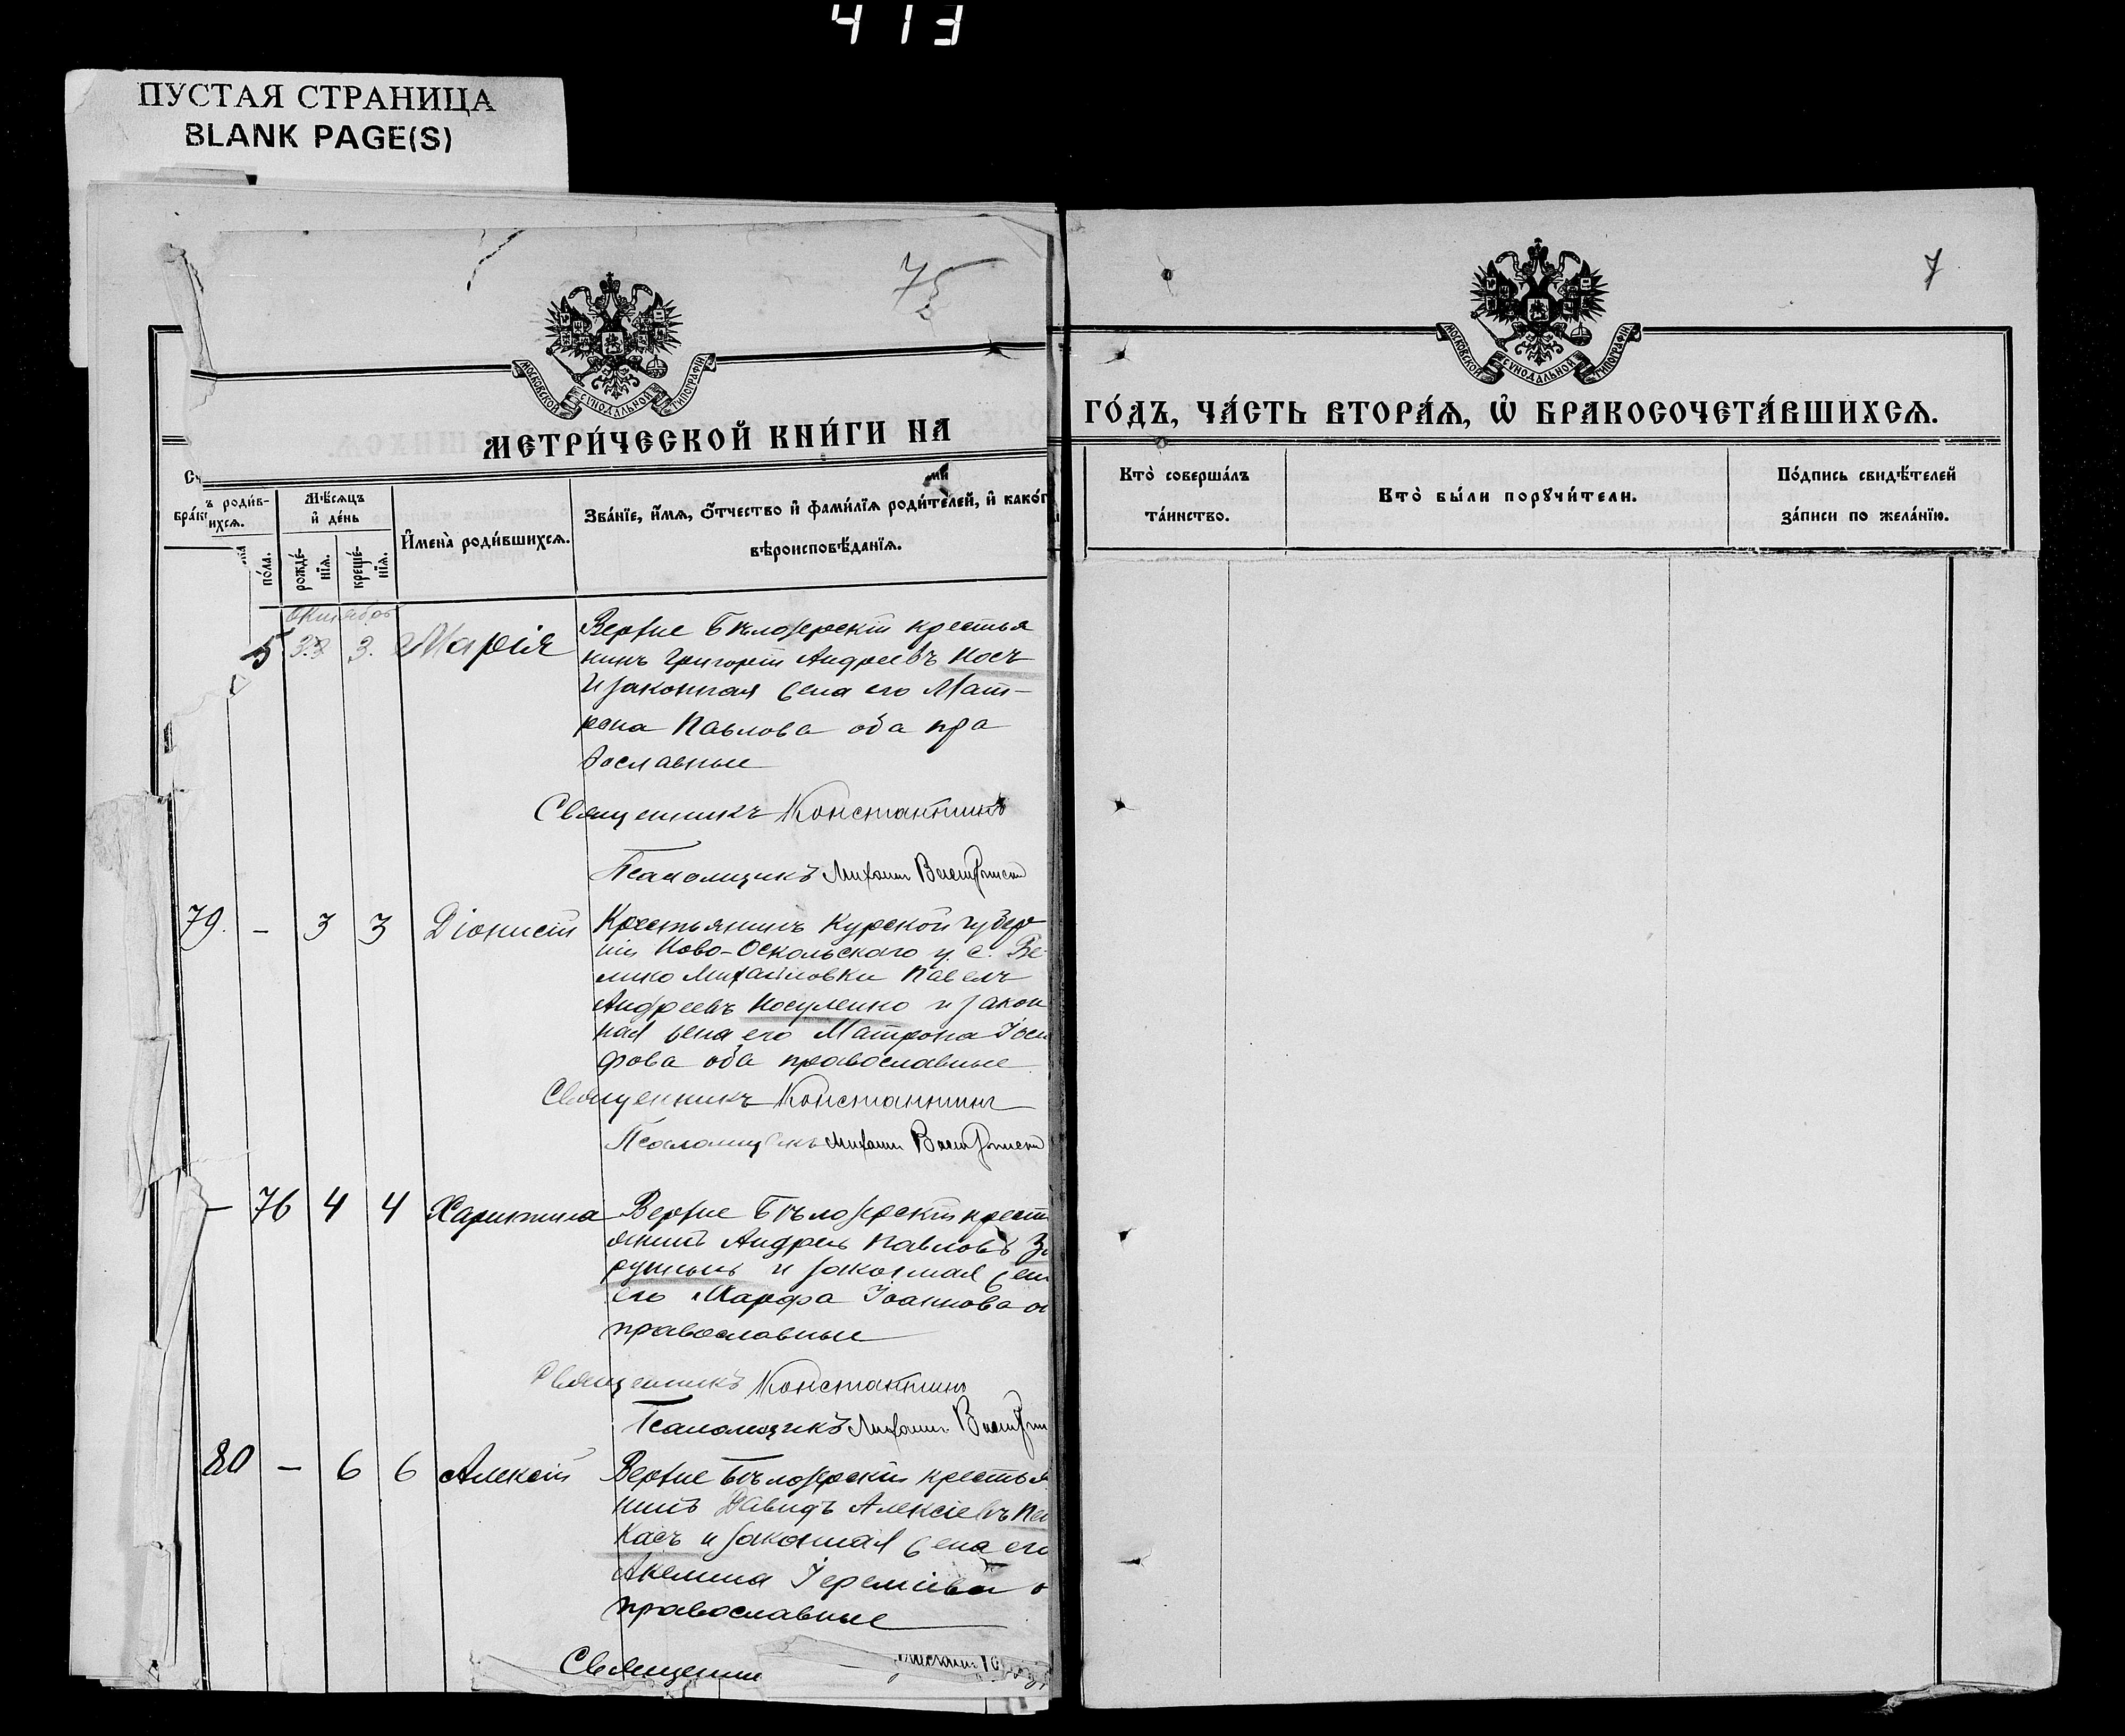 413
ПУСТАЯ СТРАНИЦА
BLANK PAGE(S)
75
МОСКОВСКОЙ СѴНОДАЛЬНОЙ ТИПОГРАФІИ
МЕТРИ́ЧЕСКОЙ КНИ́ГИ НА
Сч
бра́к
ъ роди́в-
ихсѧ.
Мѣ́сѧцъ
и҆ де́нь
нїѧ
по́ла.
рожде́-
нїѧ.
креще́-
нїѧ.
И҆мена̀ роди́вшихсѧ.
Зва́нїе, и҆́мѧ, ѻ҆́тчество и҆ фами́лїѧ роди́телей, и҆ како́г
вѣроисповѣ́данїѧ.
Октябрь
5 3. 3. Марія
Верхне Бѣлозерскій крестья
нинъ Григорій Андреевъ Носъ
и законная жена его Мат-
рона Павлова оба пра
вославные
Священникъ Константинъ
Псаломщикъ Михаилъ
79. - 3 3 Діонисій
Крестьянинъ Курской губер
ніи Ново-Оскольскаго у. с. Ве-
лико Михайловки Павелъ
Андреевъ Носуленко и закон
ная жена его Матрона Іоси
фова оба православные
Священникъ Константинъ
Псаломщикъ Михаилъ
- 76 4 4 Харитина
Верхне Бѣлозерскій крест
янинъ Андрей Павловъ
и законная жен
его Марфа Іоаннова о
православные
Священникъ Константинъ
Псаломщикъ Михаилъ
80 - 6 6 Алексій
Верхне Бѣлозерскій крестья
нинъ Давидъ Алексіевъ
касъ и законная жена его
Акелина Іереміева о
православные
Священни
7
МОСКОВСКОЙ СѴНОДАЛЬНОЙ ТИПОГРАФІИ
ГО́ДЪ, ЧА́СТЬ ВТОРА́Ѧ, Ѽ БРАКОСОЧЕТА́ВШИХСѦ.
Кто̀ соверша́лъ
та́инство.
Кто̀ бы́ли порꙋчи́тели.
По́дпись свидѣ́телей
за́писи по жела́нїю.